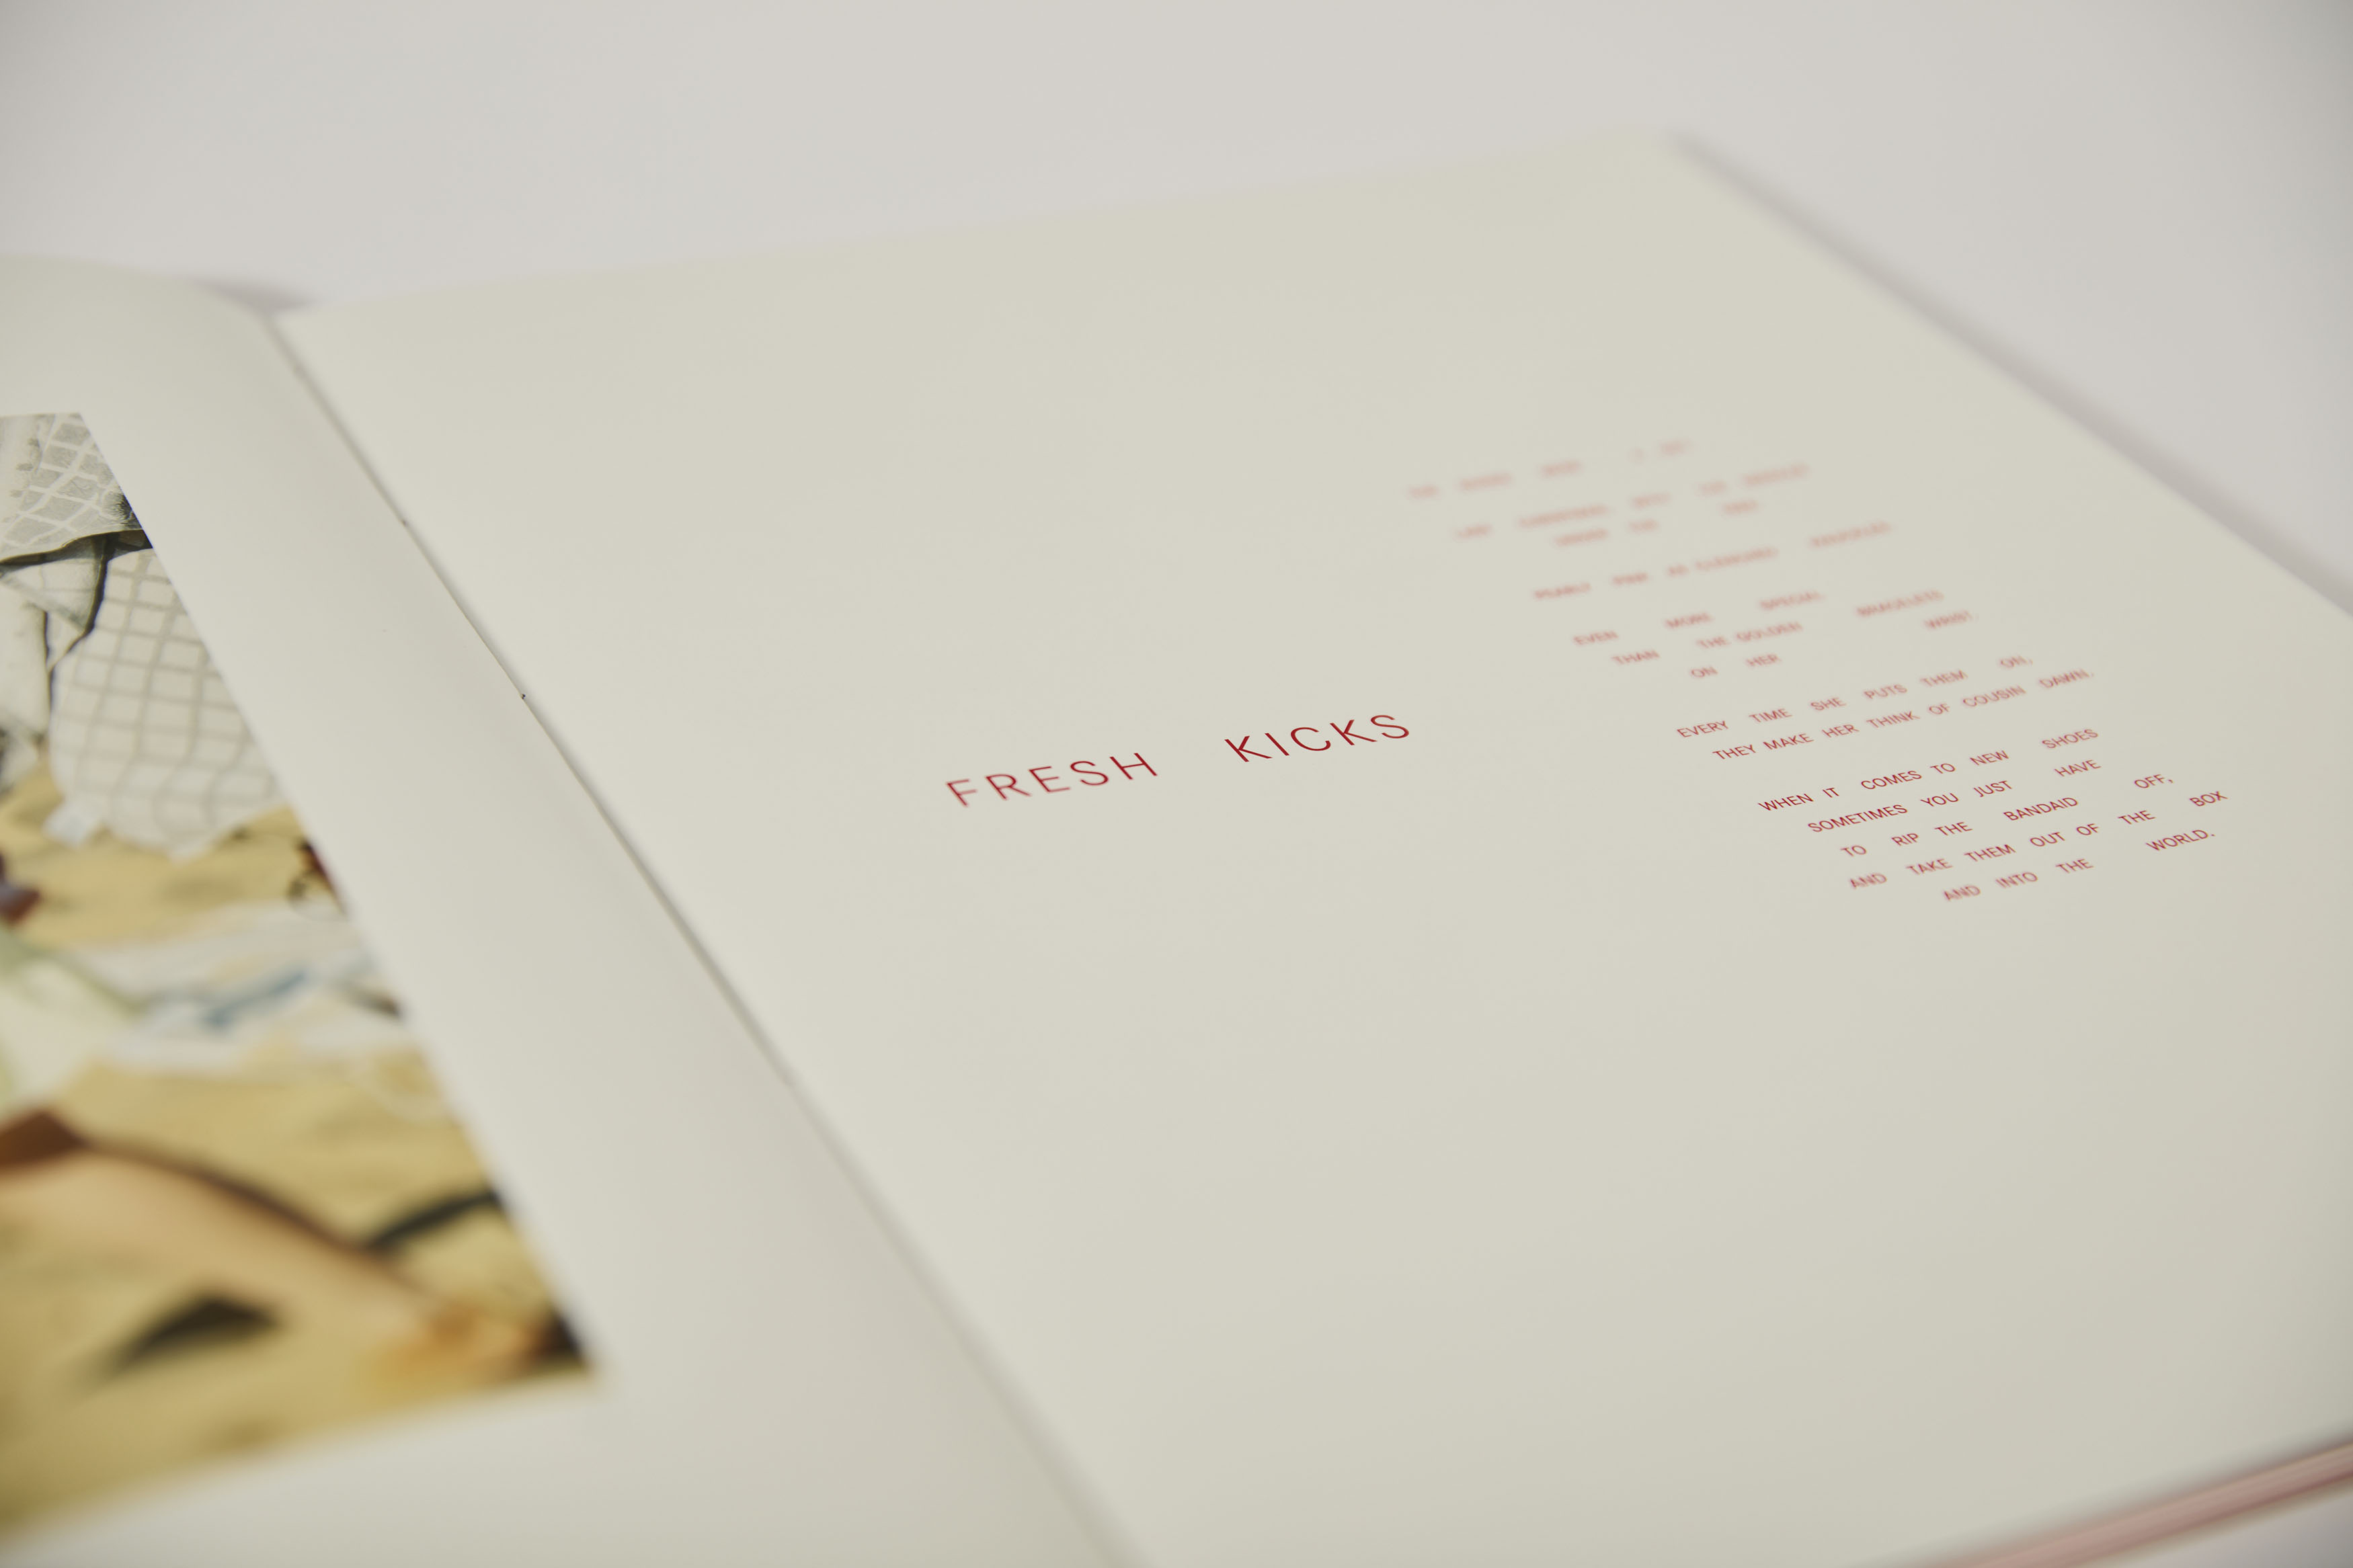 FRESH KICKS
UNDER THE
PEARLY PINK AS CLENCHED KNUCKLES
EVEN MORE SPECIAL
THAN THE GOLDEN BRACELETS
ON HER WRIST.
EVERY TIME SHE PUTS THEM ON,
THEY MAKE HER THINK OF COUSIN DAWN.
WHEN IT COMES TO NEW SHOES
SOMETIMES YOU JUST HAVE
TO RIP THE BANDAID OFF,
AND TAKE THEM OUT OF THE BOX
AND INTO THE WORLD.